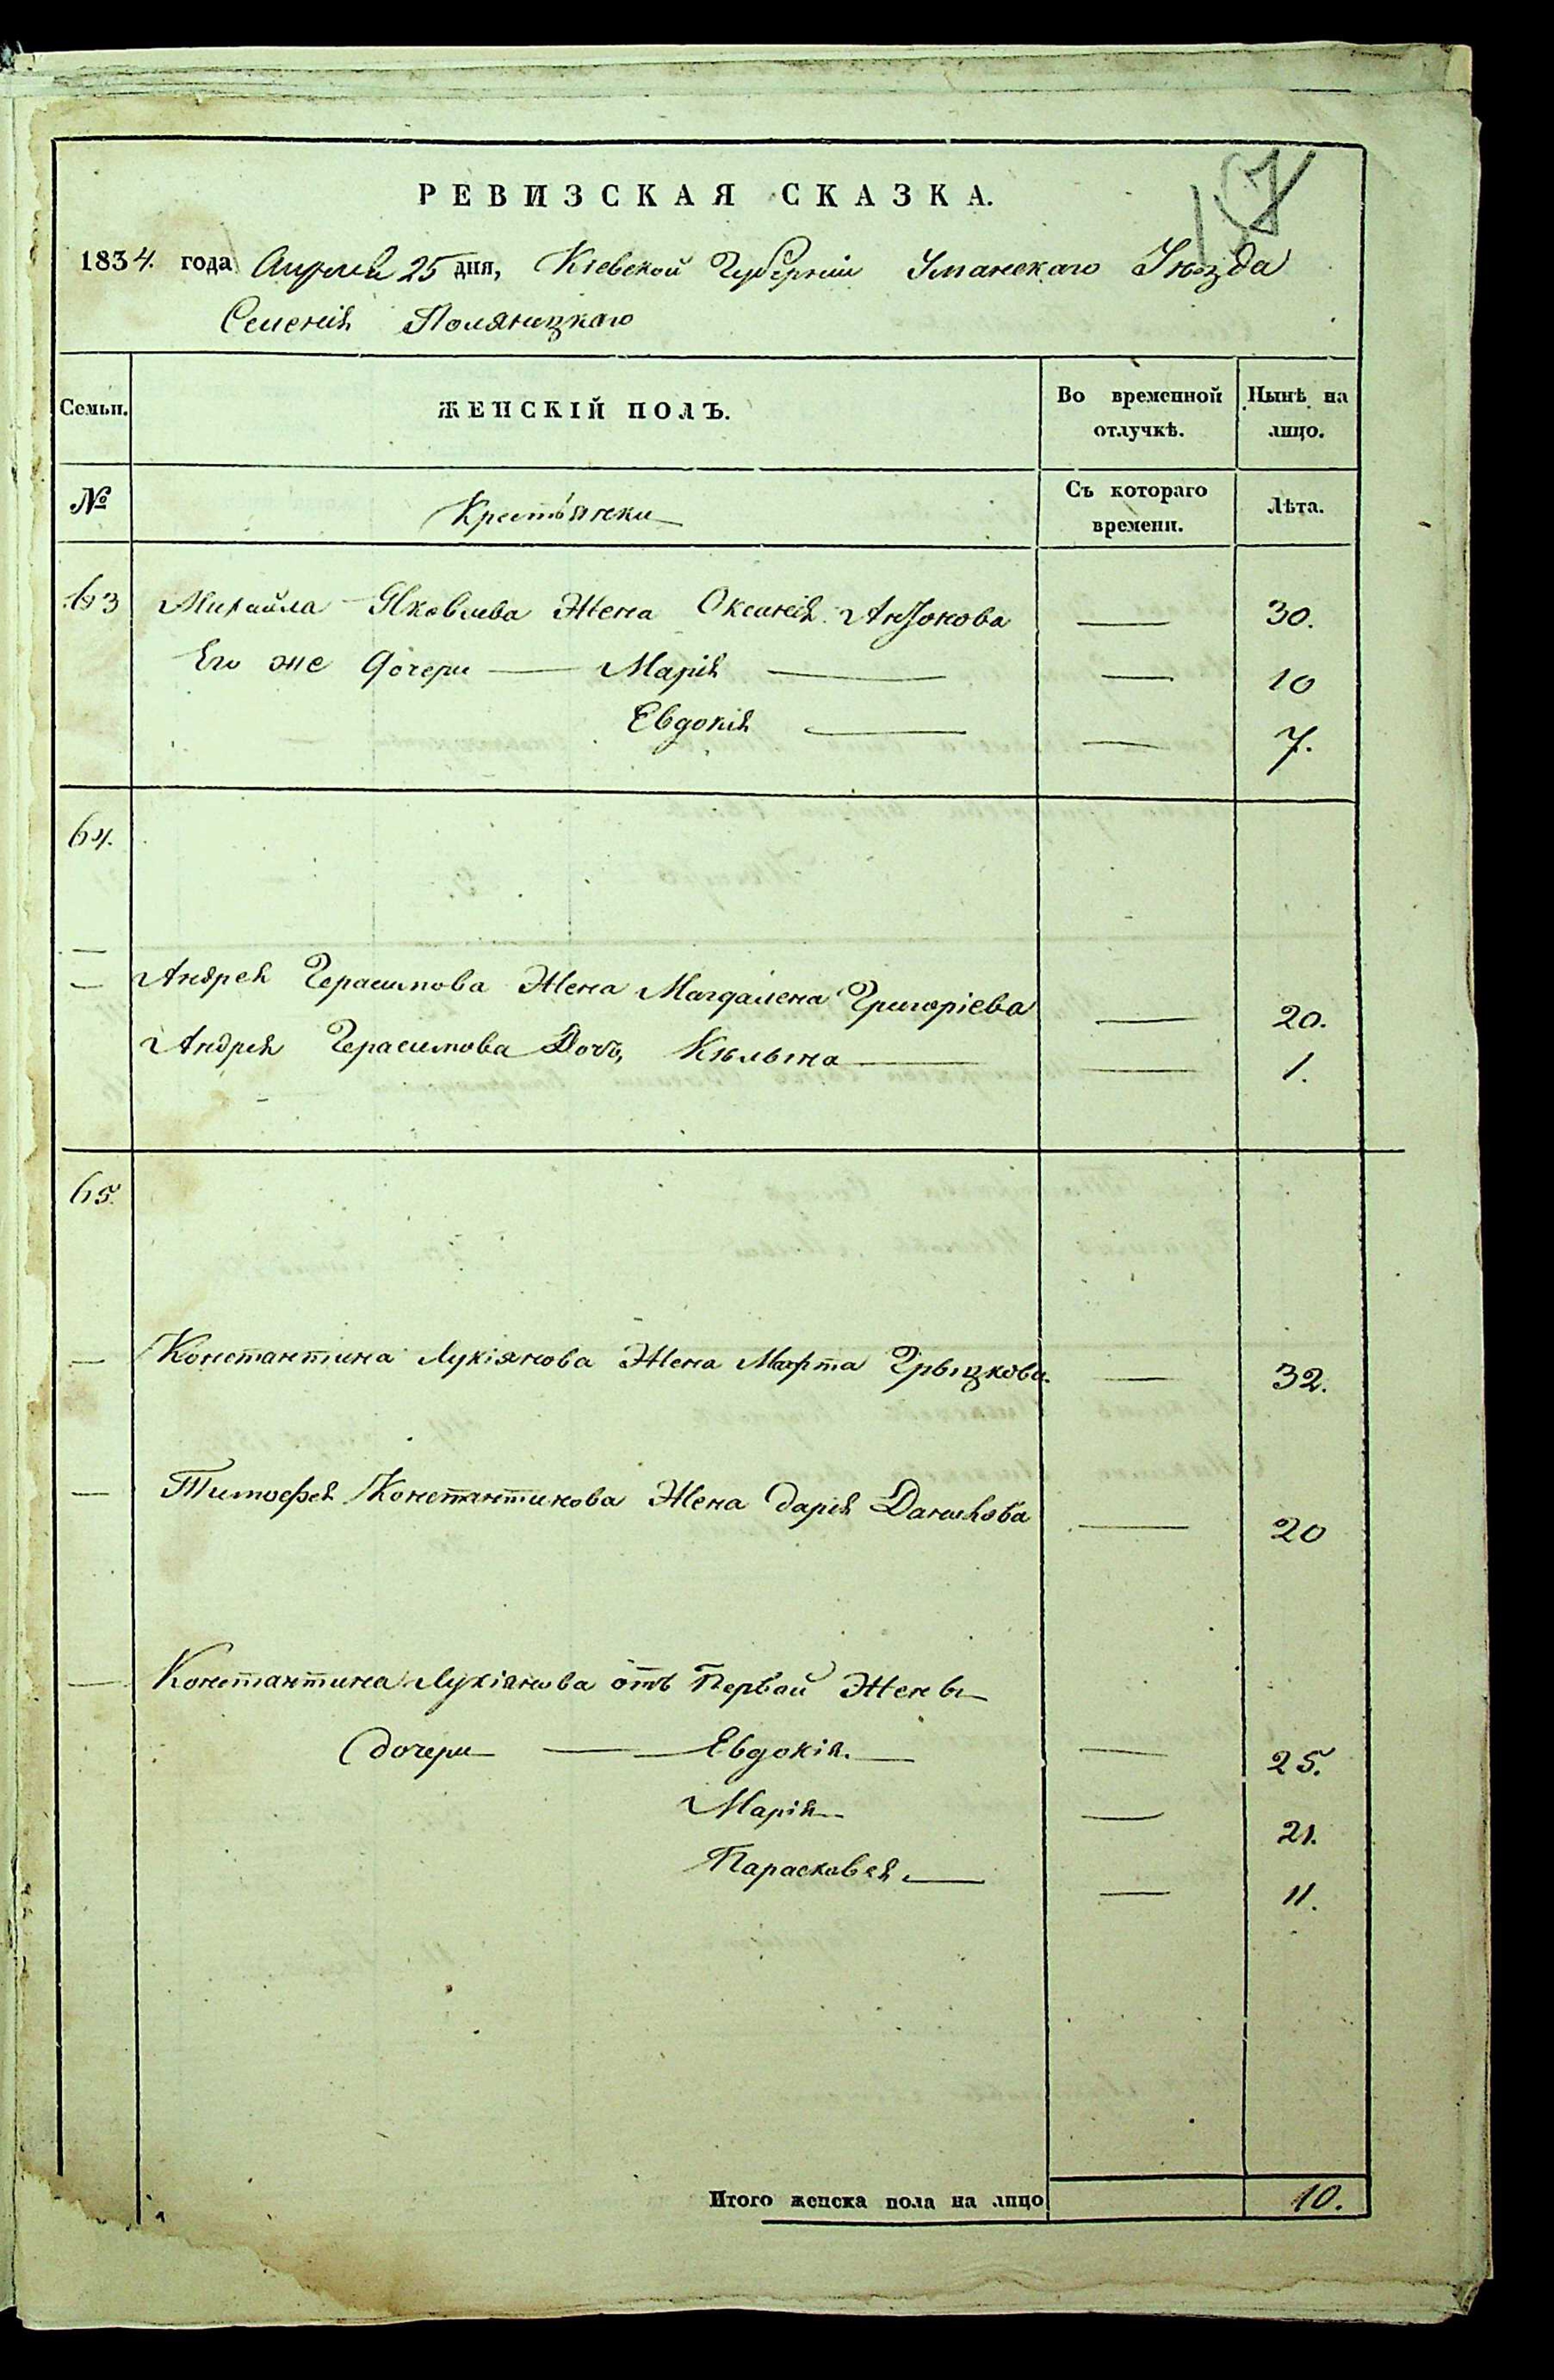 РЕВИЗСКАЯ СКАЗКА.
1834. года Апреля 25 дня, Кіевской Губерніи Уманскаго Уѣзда
Селенія Поляницкаго
Семьи. ЖЕНСКІЙ ПОЛЪ. Во временной отлучкѣ. Нынѣ на лицо.
№ Крестьянки Съ котораго времени. Лѣта.
63 Михайла Яковлева Жена Оксинія Антонова — 30.
Его же дочери — Марія — — 10
Евдокія — — 7.
64.
— Андрея Герасимова Жена Магдалена Григоріева — 20.
Андрея Герасимова Дочь — 1.
65.
— Константина Лукіянова Жена Марта Грыцкова. — 32.
— Тимофея Константинова Жена Дарія — 20
— Константина Лукіянова отъ Первой Жены
дочери — Евдокія. — — 25.
Марія — — 21.
Парасковея — — 11.
Итого женска пола на лицо 10.